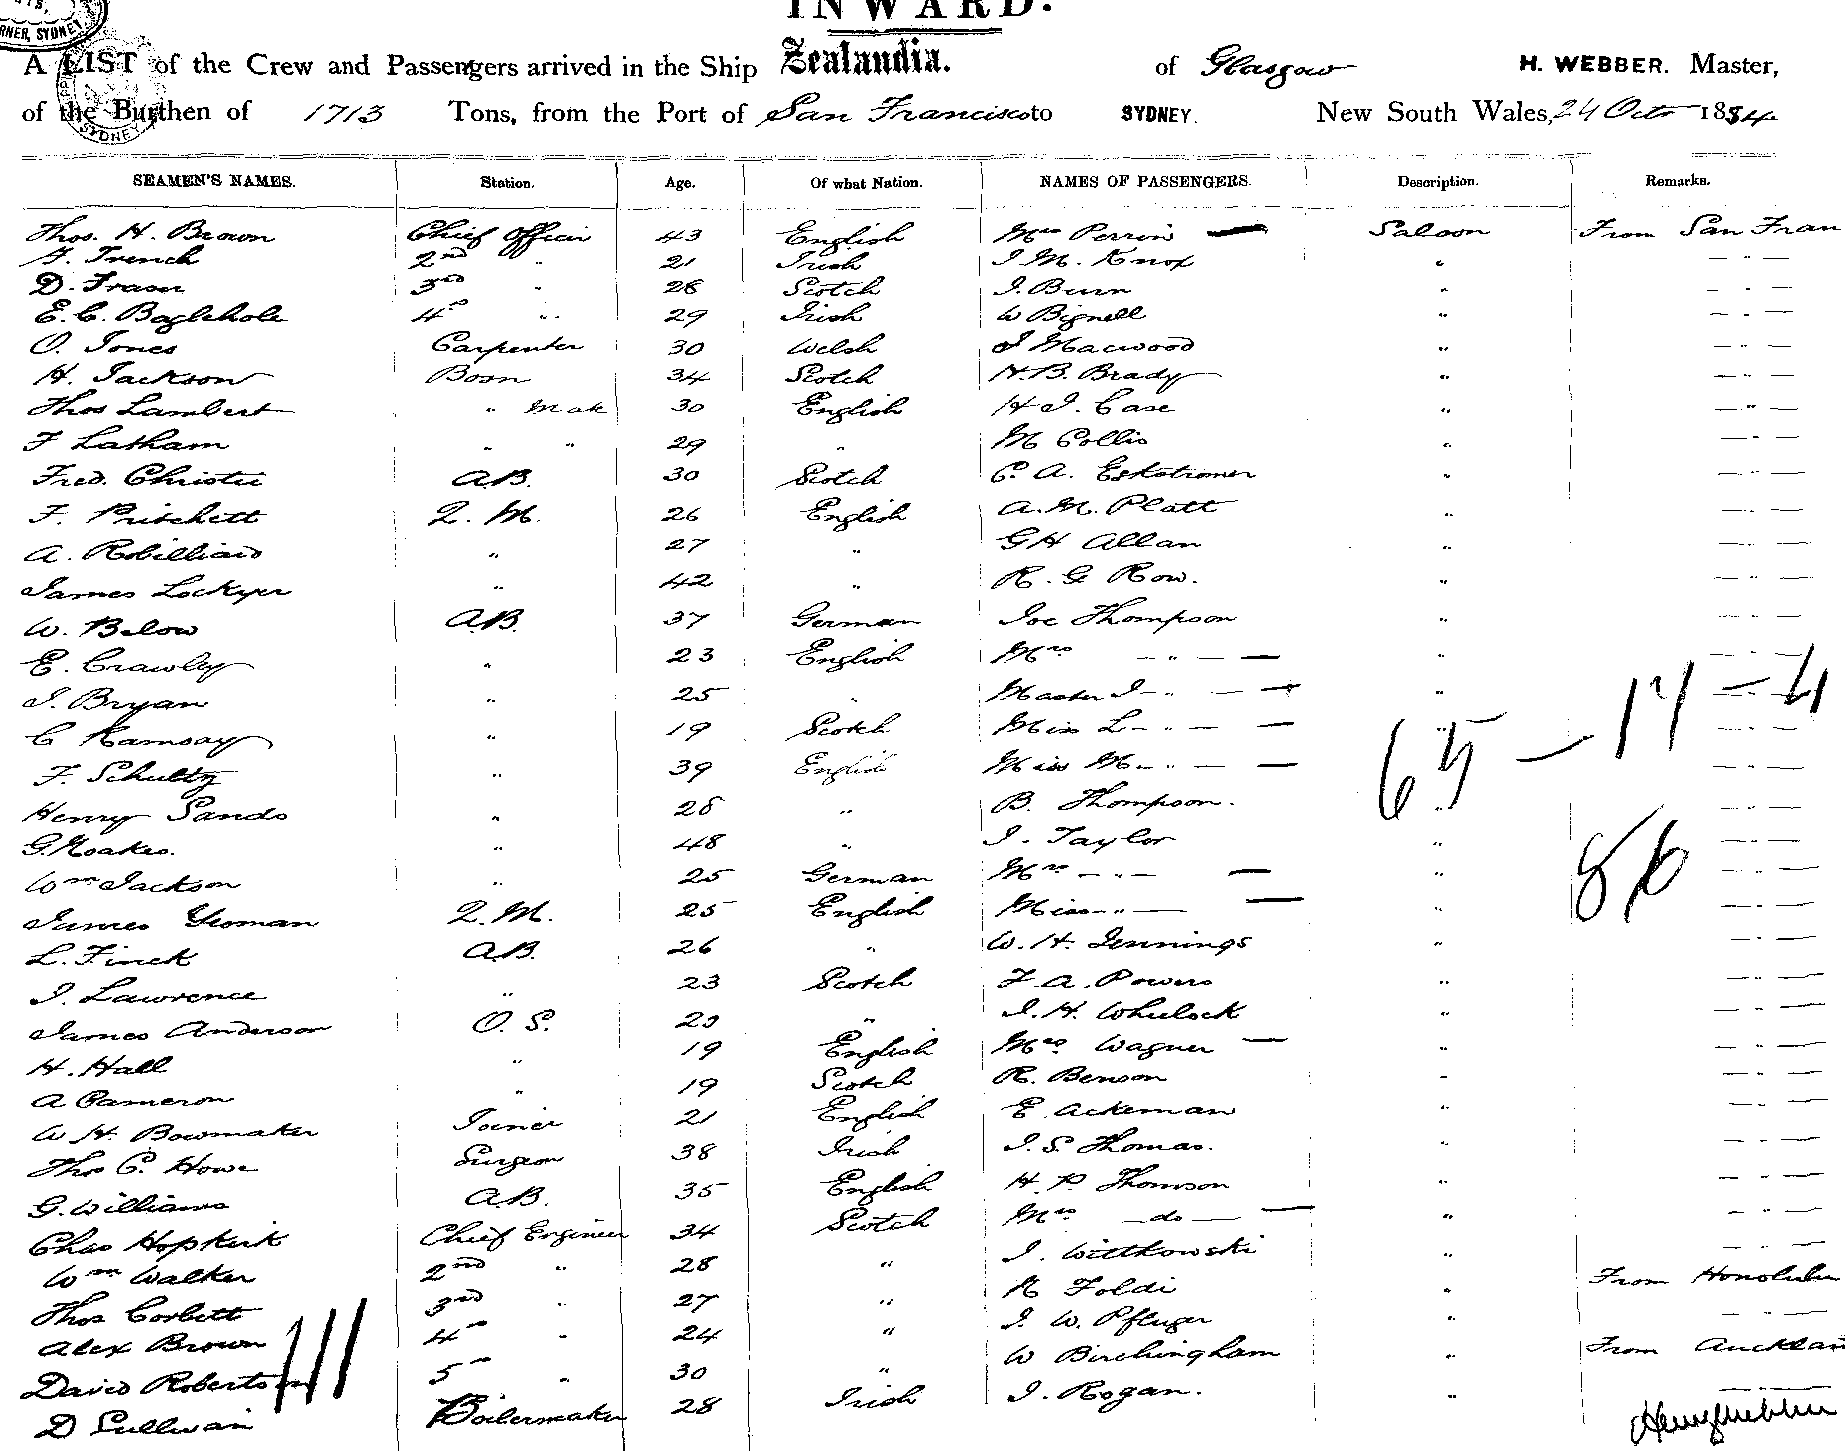 INWARD.
A LIST of the Crew and Passengers arrived in the Ship Zealandia. of Glasgow H. WEBBER. Master,
of the Burthen of 1713 Tons, from the Port of San Francisco to SYDNEY. New South Wales, 24 Octr 1884
SEAMEN'S NAMES. Station. Age. Of what Nation. NAMES OF PASSENGERS. Description. Remarks.
Thos. H. Brown Chief Officer 43 English Mrs Perrin — Saloon From San Fran
F. French 2nd " 21 Irish J M. Knox " — " —
D. Fraser 3rd " 28 Scotch J. Burn " — " —
E. C. Baglehole 4th " 29 Irish W Bignell " — " —
O. Jones Carpenter 30 Welsh J Macwood " — " —
H. Jackson Bosn 34 Scotch H. B. Brady " — " —
Thos Lambert " Mate 30 English H J. Case " — " —
F Latham " " 29 " M Collis " — " —
Fred. Christie A.B. 30 Scotch C. A. " — " —
F. Pritchett Q. M. 26 English A. M. Platt " — " —
A. Robilliard " 27 " G H Allan " — " —
James Lockyer " 42 " R. G Row. " — " —
W. Below A.B. 37 German Joe Thompson " — " —
E. Crawley " 23 English Mrs — " — — " — " —
J. Bryan " 25 " Master J — " — — " — " —
C Ramsay " 19 Scotch Miss L — " — — " — " —
F. Schultz " 39 English Miss M — " — — " — " —
Henry Sands " 28 " B. Thompson. " — " —
G. Noakes. " 48 " J. Taylor " — " —
Wm Jackson " 25 German Mrs — " — — " — " —
James Yeoman Q. M. 25 English Miss — " — — " — " —
L. Finck A.B. 26 " W. H. Jennings " — " —
J. Lawrence " 23 Scotch F. A. Powers " — " —
James Anderson O. S. 20 " J. H. Whelock " — " —
H. Hall " 19 English Mrs Wagner — " — " —
A Cameron " 19 Scotch R. Benson " — " —
W H. Bowmaker Joiner 21 English E. Ackeman " — " —
Thos C. Howe Surgeon 38 Irish J. S. Thomas. " — " —
G. Williams A.B. 35 English H. P. Thomson " — " —
Chas Hopkirk Chief Engineer 34 Scotch Mrs — do — — " — " —
Wm Walker 2nd " 28 " J. Wittkowski " — " —
Thos Corbett 3rd " 27 " R Foldi " From Honolulu
Alex Brown 4th " 24 " J. W. Pfluger " — " —
David Robertson 5th " 30 " W Birchingham " From Aucklan
D Sullivan Boilermaker 28 Irish J. Rogan. "
65 — 17 — 4
86